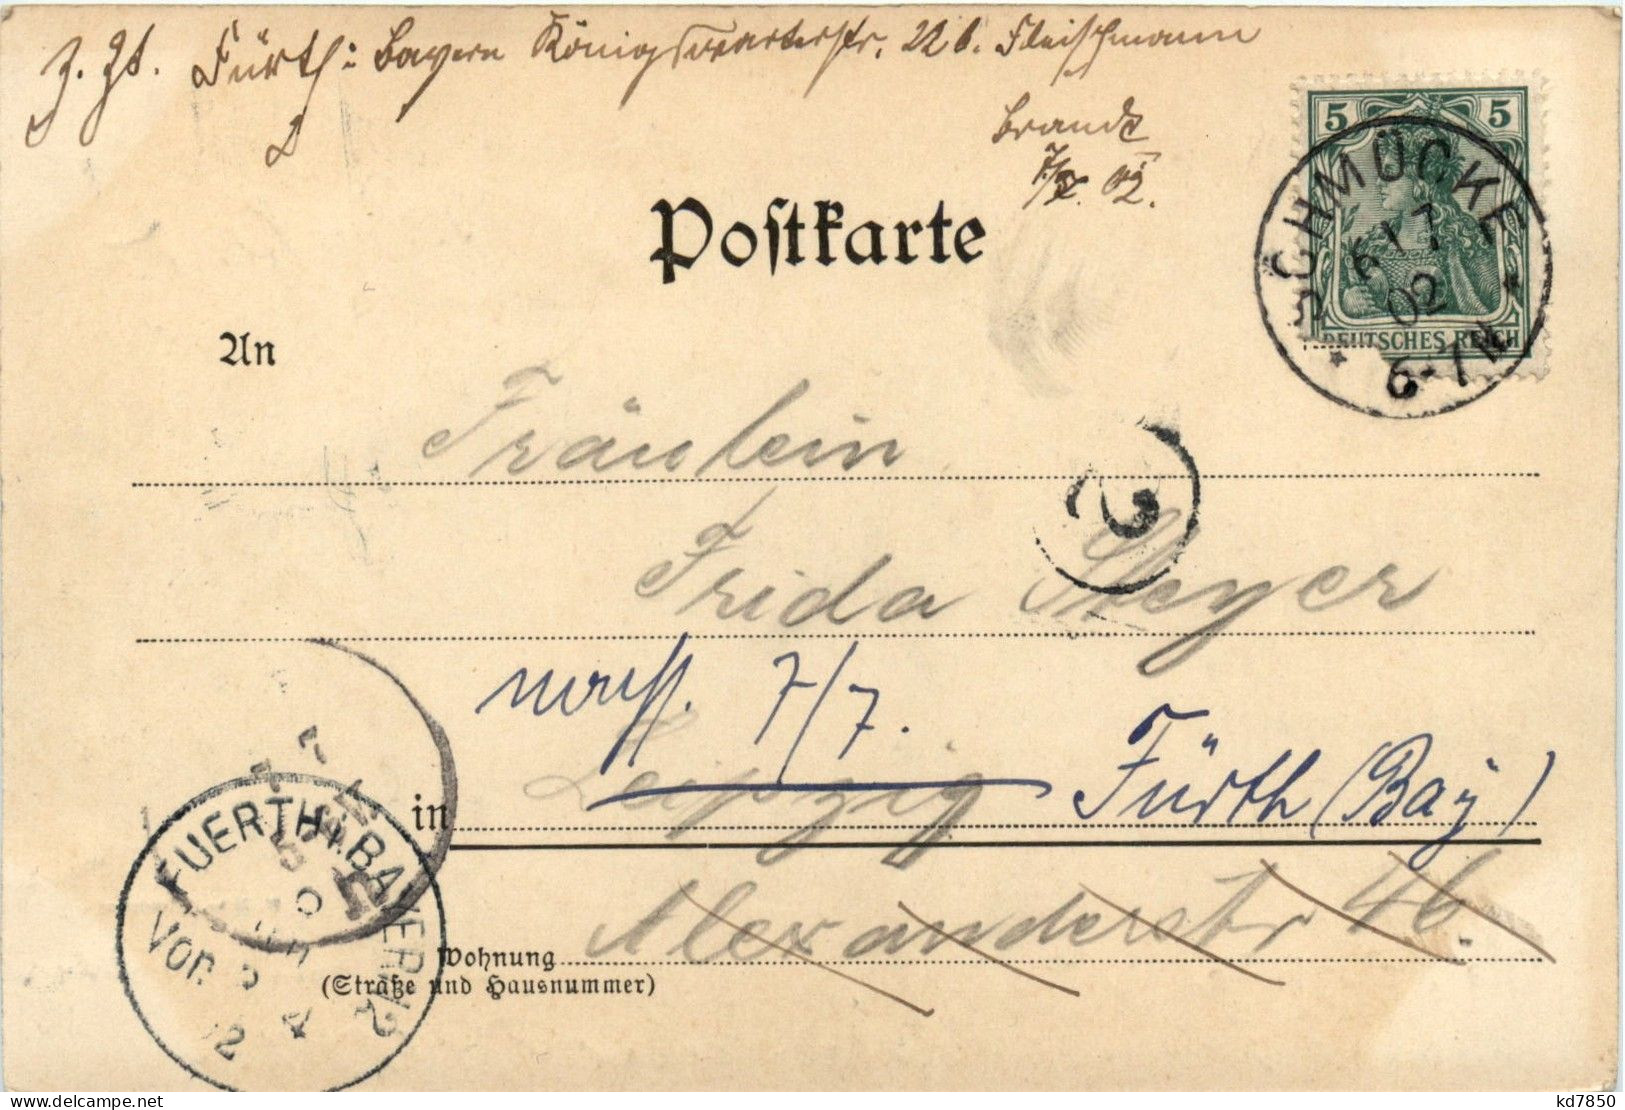 z. Zt. Fürth i. Bayern Königswarterstr. 22 b. Fleischmann
Brandt
7/7. 02.
5 5
DEUTSCHES REICH
SCHMÜCKE
6 7
02
6-7 N
Postkarte
An
Fräulein
2
Frida Steyer
7/7.
Leipzig Fürth (Bay)
in
Alexanderstr 46.
Wohnung
(Straße und Hausnummer)
FUERTH I. BAYERN 2
VOR.
delcampe.net
kd7850